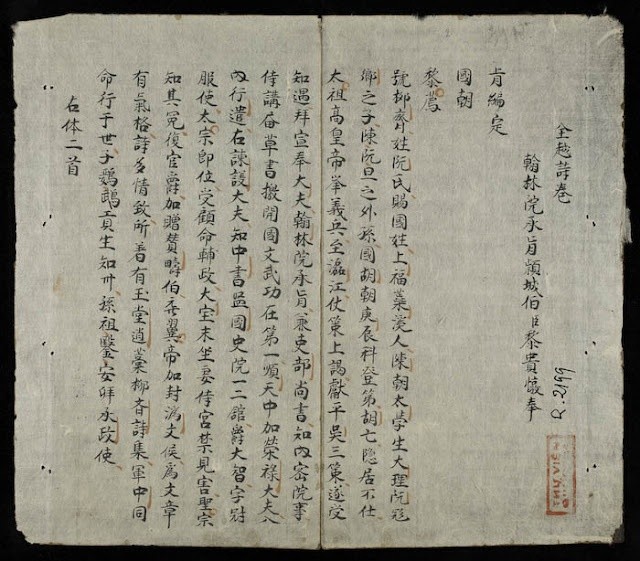 全越詩卷
翰林院承旨頴城伯臣黎貴惇奉
旨編定
國朝
黎廌
號抑齋姓阮氏賜國姓上福蘂溪人陳朝太學生大理阮飛
卿之子陳阮旦之外孫國胡朝庚辰科登第胡亡隐居不仕
太祖高皇帝举義兵至瀘江仗策上謁獻平吳三策遂受
知遇拜宣奉大夫翰林院承旨兼吏部尚書知內密院事
侍講草書檄開國文武功在第一順天中加榮禄大夫入
內行遣右諫議大夫知中書監國史院一三館爵大智字尉
服使太宗即位受顧命輔政大宝末坐妻侍宮禁見害聖宗
知其冤復官爵加贈賛疇伯翼帝加封濟文侯為文章
有氣格詩多情致所著有玉堂遺藁抑斎詩集軍中同
命行于世子鸚鵡員生知州孫祖鑒安拜承政使
右体二首
R.2199
THƯ VIỆN